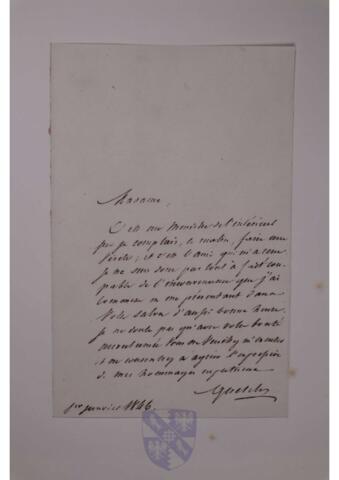 Madame,
C'est au Ministre de l'intérieur
que je comptais, ce matin, faire une
visite; et c'est l'ami qui m'a
Je ne suis donc pas tout à fait cou-
pable de l'inconvenance que j'ai
commise en me présentant dans
votre salon d'aussi bonne heure.
Je ne doute pas qu'avec votre bonté
accoutumée vous ne veuillez m'excuser
et me conserver
de mes hommages
Quetelet
1er janvier 1846.